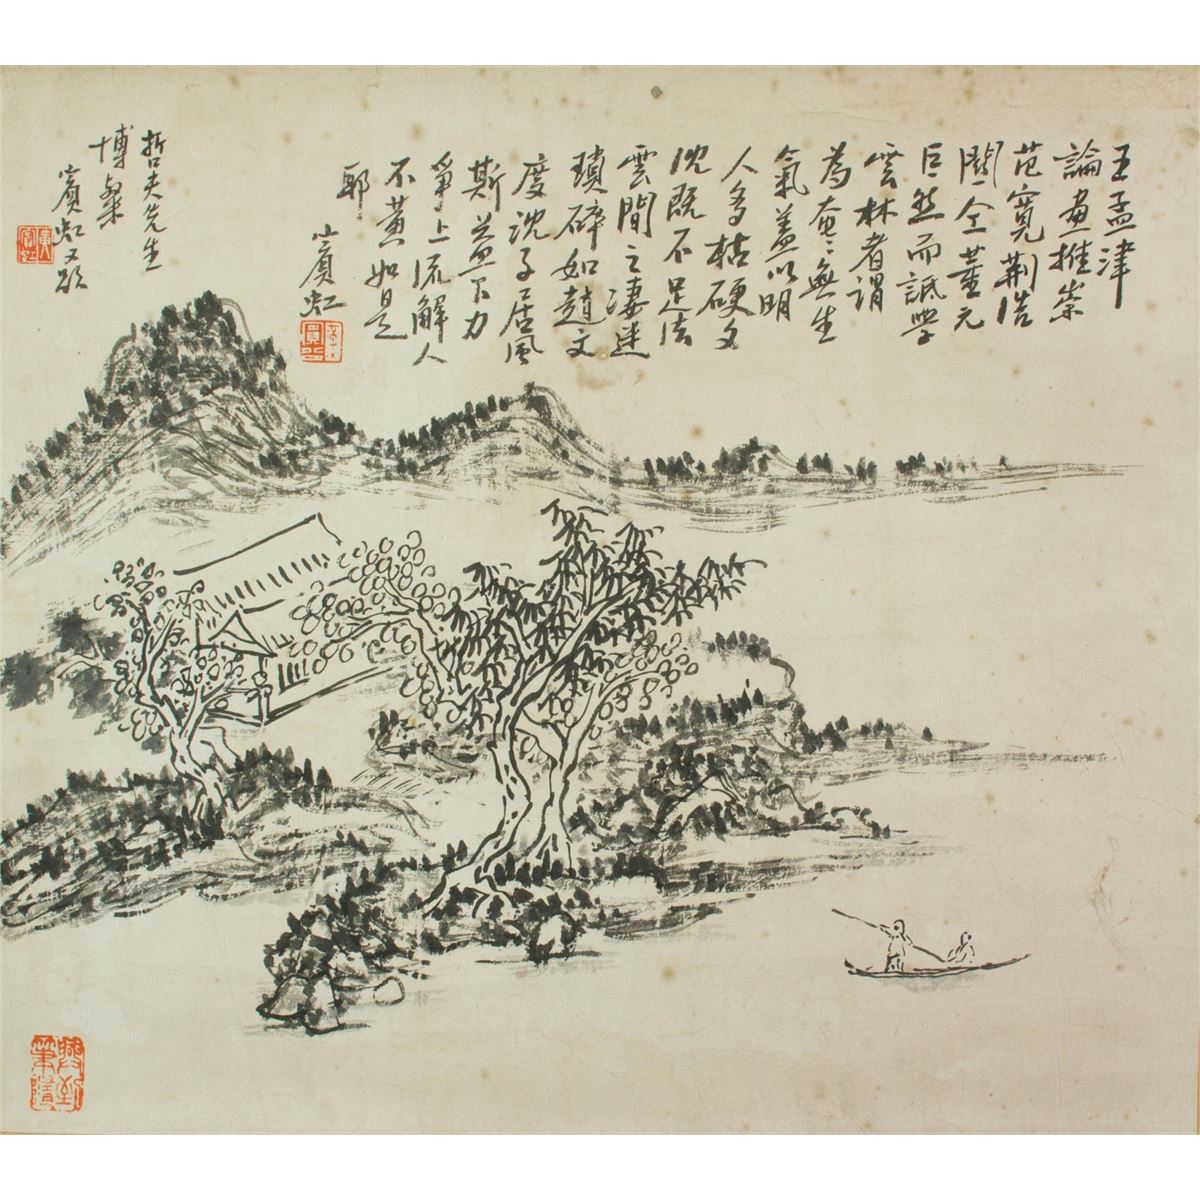 王孟津
論畫推崇
范寬荆浩
關仝董元
巨然而詆學
雲林者謂
為奄奄無生
氣蓋以明
人多枯硬文
沈既不足法
雲間之淒迷
瑣碎如趙文
度沈子居風
斯益下力
爭上流解人
不當如是
耶
賓虹
哲夫先生
博粲
賓虹又題
興到
筆隨